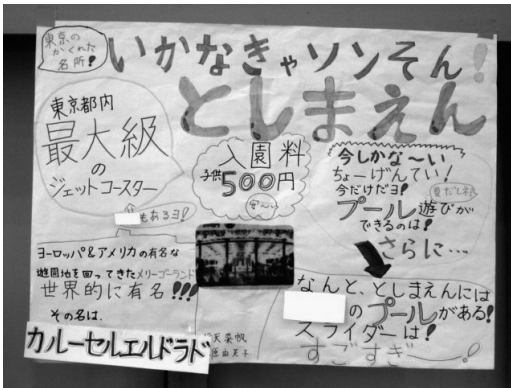 東京の
かくれた
名所!
いかなきゃソンそん!
としまえん
東京都内
最大級
の
ジェットコースター
もあるヨ!
入園料
子供500円
安〜い
今しかな〜い
ちょーげんてい!
今だけだヨ!
プール遊びが
できるのは!
さらに…
ヨーロッパ&アメリカの有名な
遊園地を回ってきたメリーゴーランド
世界的に有名!!!
その名は、
カルーセルエルドラド
なんと、としまえんには
のプールがある!
スライダーは!
すごすぎ